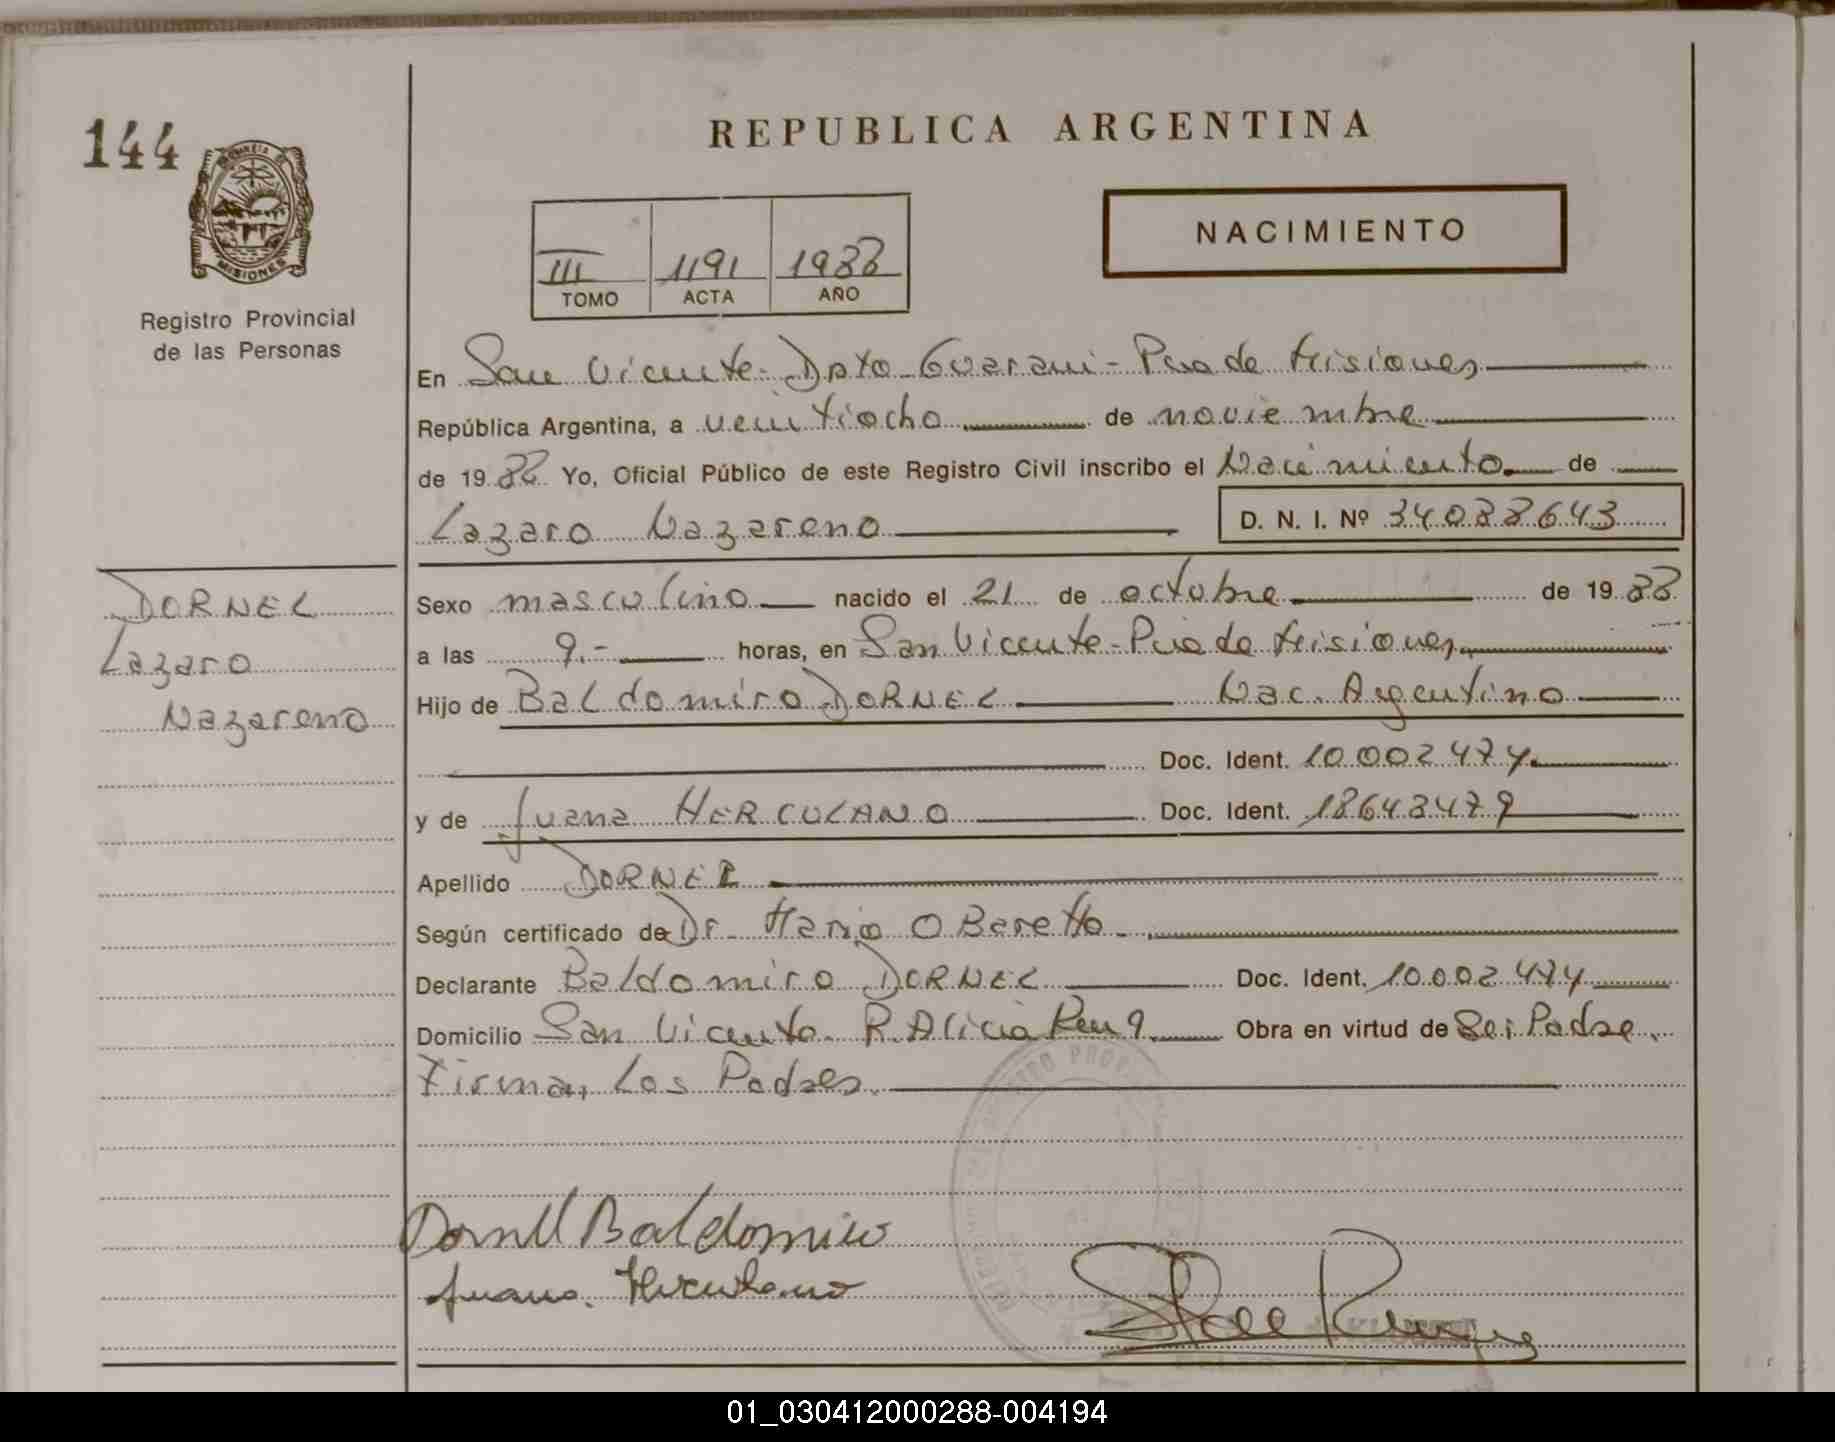 144
REPUBLICA ARGENTINA
PROVINCIA DE
MISIONES
NACIMIENTO
III 1191 1988
TOMO ACTA AÑO
Registro Provincial
de las Personas
En San Vicente - Dpto Guarani - Pcia de Misiones
República Argentina, a veintiocho de noviembre
de 1988 Yo, Oficial Público de este Registro Civil inscribo el Nacimiento de
Lazaro Nazareno D. N. I. Nº 34088643
DORNEL
Lazaro
Nazareno
Sexo masculino nacido el 21 de octubre de 1988
a las 9.- horas, en San Vicente - Pcia de Misiones
Hijo de Baldomiro DORNEL Nac. Argentino
Doc. Ident. 10.002474
y de Juana HERCULANO Doc. Ident. 18643479
Apellido DORNEL
Según certificado de Dr. Mario O Baretto
Declarante Baldomiro DORNEL Doc. Ident. 10.002474
Domicilio San Vicente R. Alicia Km 9 Obra en virtud de Ser Padre
Firman Los Padres.
Dornell Baldomiro
Juana Herculano
01_030412000288-004194